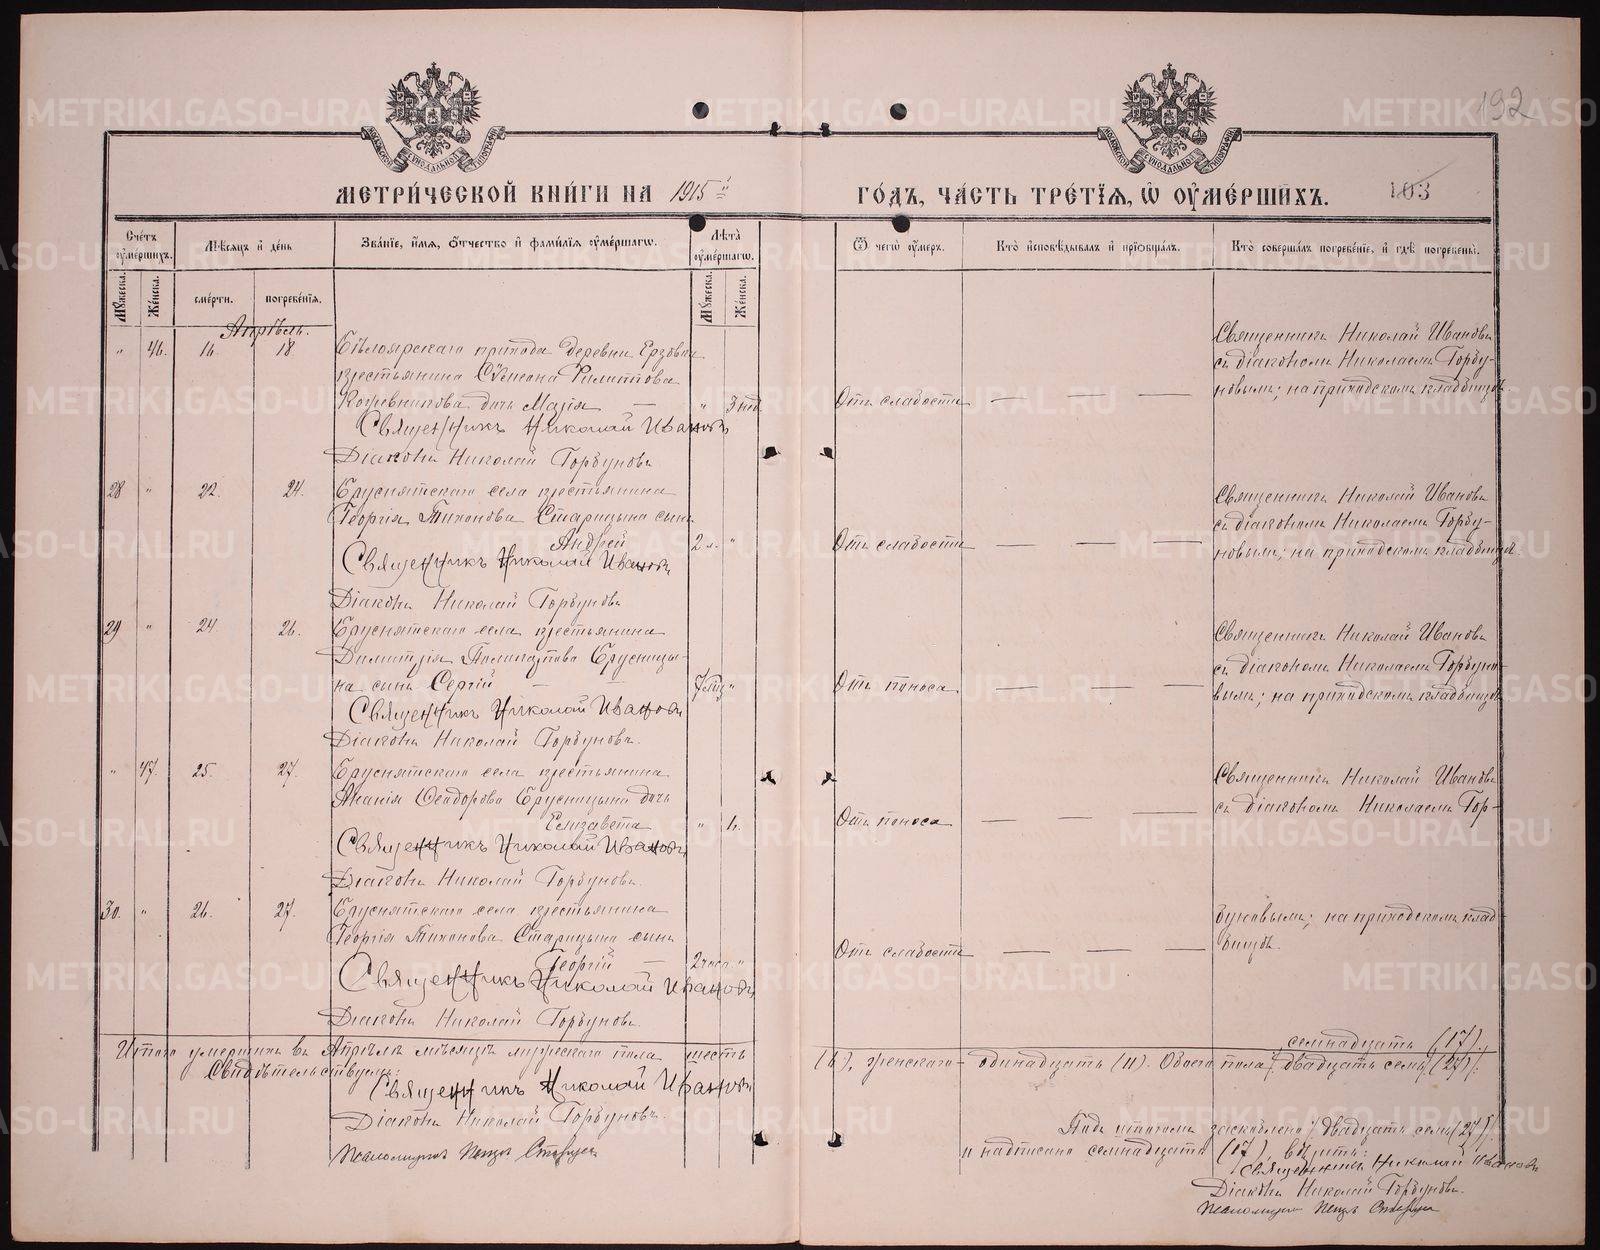 192
МЕТРИ́ЧЕСКОЙ КНИ́ГИ НА 1915 й
ГО́ДЪ, ЧА́СТЬ ТРЕ́ТІЯ, Ѡ ОУМЕ́РШИХЪ.
103
Сче́тъ оумершихъ.
Мꙋжеска.
Же́нска.
Мѣсяцъ и де́нь
сме́рти.
погребе́нія.
Зва́ніе, и́мя, ѻ́тчество и фами́лія оуме́ршагѡ.
Лѣта оуме́ршагѡ.
Мꙋжеска.
Же́нска.
Ѿ чегѡ̀ оу́меръ.
Кто̀ исповѣдывалъ и пріобща́лъ.
Кто̀ соверша́лъ погребе́ніе, и гдѣ̀ погребены̀.
Апрѣль.
" 46. 16. 18
Бѣлоярскаго прихода деревни Ерзовки
крестьянина Симеона Филиппова
Кожевникова дочь Марія — " 3 нед.
Священникъ Николай Ивановъ
Діаконъ Николай Горбуновъ
Отъ слабости — — —
Священникъ Николай Ивановъ
съ діакономъ Николаемъ Горбу-
новымъ; на приходскомъ кладбищѣ
28 " 22. 24.
Бруснятскаго села крестьянина
Георгія Тихонова Старицына сынъ
Андрей 2 л. "
Священникъ Николай Ивановъ
Діаконъ Николай Горбуновъ
Отъ слабости — — —
Священникъ Николай Ивановъ
съ діакономъ Николаемъ Горбу-
новымъ; на приходскомъ кладбищѣ.
29 " 24 26.
Бруснятскаго села крестьянина
Димитрія Поликарпова Брусницы-
на сынъ Сергій — — 7 мѣс "
Священникъ Николай Ивановъ
Діаконъ Николай Горбуновъ.
Отъ поноса — — —
Священникъ Николай Ивановъ
съ діакономъ Николаемъ Горбуно-
вымъ; на приходскомъ кладбищѣ
" 47. 25. 27.
Бруснятскаго села крестьянина
Ананія Ѳеодорова Брусницына дочь
Елизавета "
Священникъ Николай Ивановъ
Діаконъ Николай Горбуновъ.
Отъ поноса — — —
Священникъ Николай Ивановъ
съ діакономъ Николаемъ Гор-
30. " 26. 27.
Бруснятскаго села крестьянина
Георгія Тихонова Старицына сынъ
Георгій — 2 часа "
Священникъ Николай Ивановъ
Діаконъ Николай Горбуновъ
Отъ слабости — — —
буновымъ; на приходскомъ клад-
бищѣ.
семнадцать (17).
Итого умершихъ въ Апрѣлѣ мѣсяцѣ мужескаго пола шесть
(6), женскаго – одинадцать (11). Обоего пола двадцать семь (27).
Свидѣтельствуемъ:
Священникъ Николай Ивановъ
Діаконъ Николай Горбуновъ.
Псаломщикъ
Подъ итогомъ заскоблено двадцать семь (27)
и надписано семнадцать (17) вѣрить:
Священникъ Николай Ивановъ
Діаконъ Николай Горбуновъ.
Псаломщикъ
METRIKI.GASO-URAL.RU